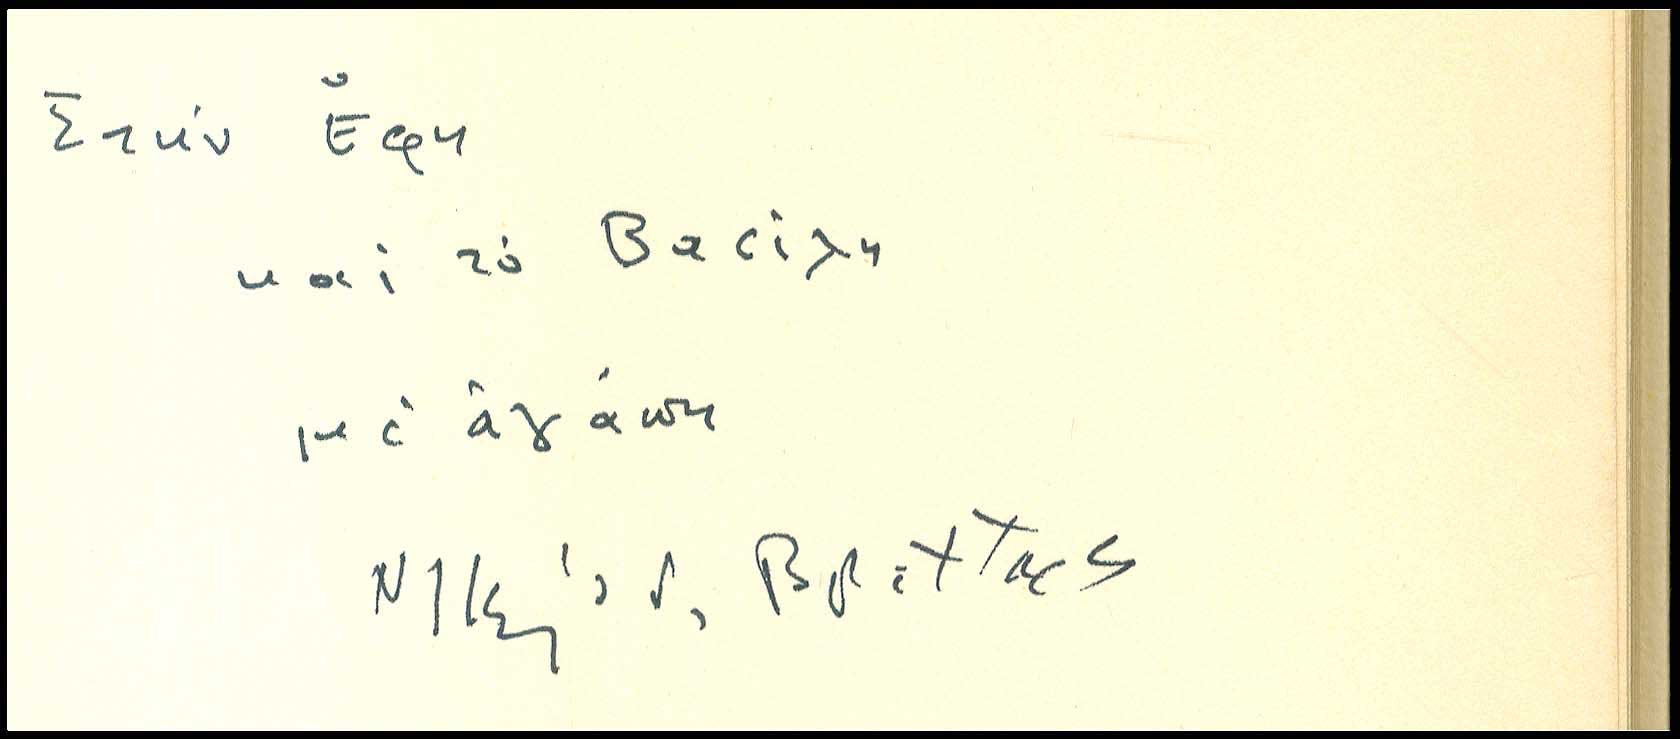 Στήν Ἔφη
καί τό Βασίλη
μέ ἀγάπη
Νικηφ. Βρεττάκος